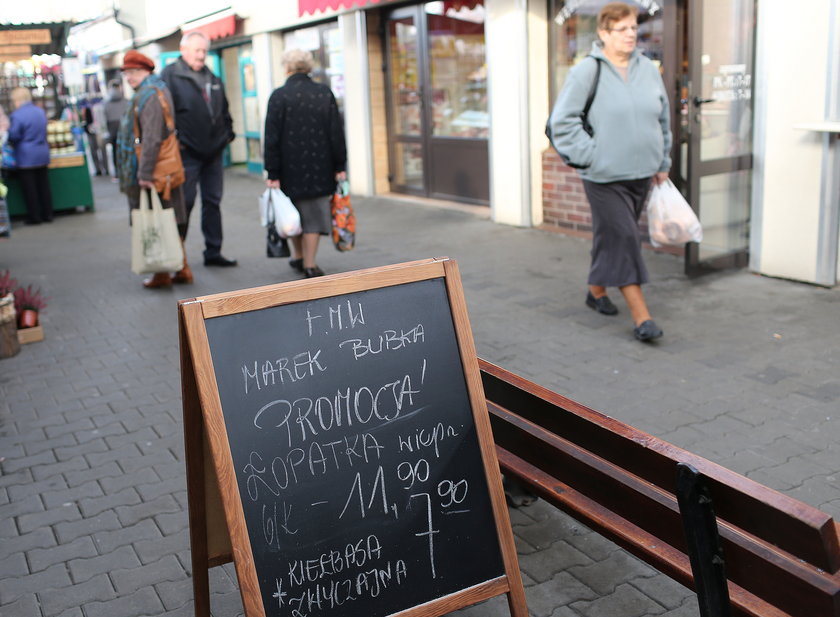 F.M.W
MAREK BUBKA
PROMOCJA!
ŁOPATKA wiepr.
b/K - 11,90
7,90
* KIEŁBASA
ZWYCZAJNA